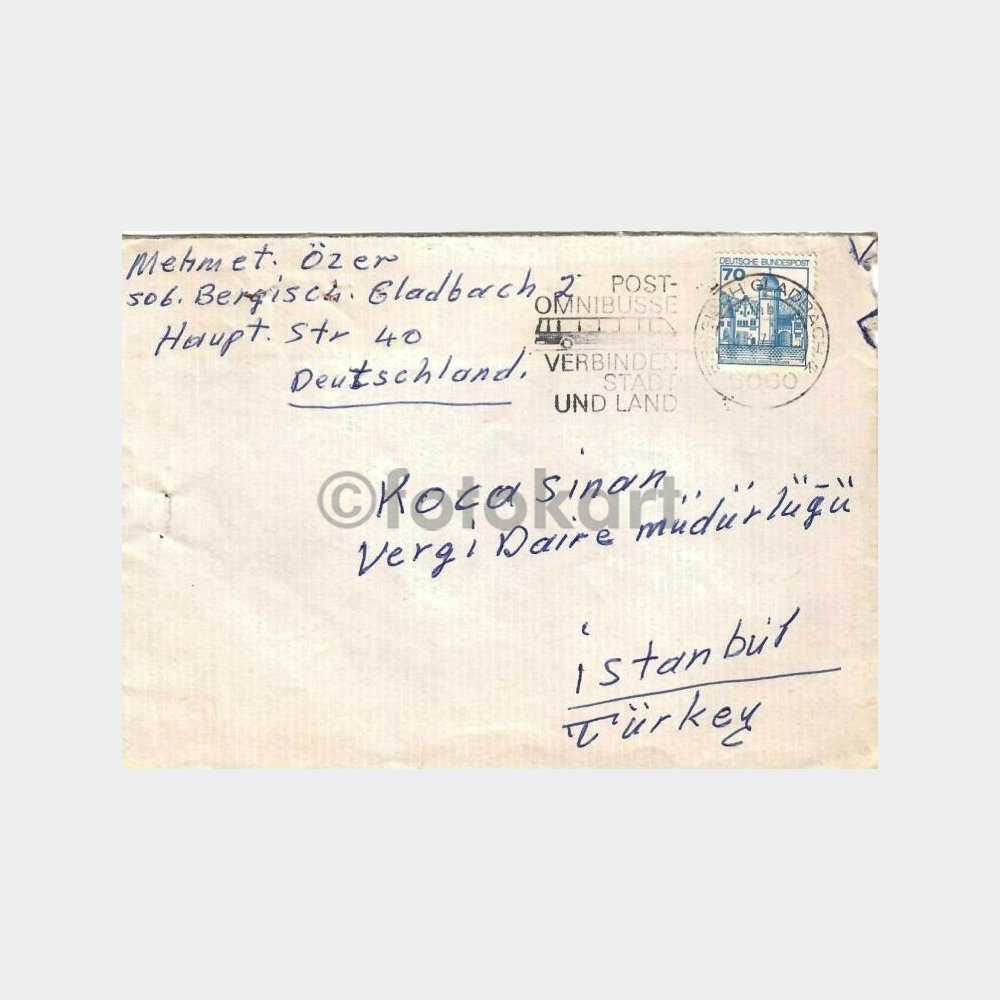 Mehmet. Özer
506. Bergisch. Gladbach 2
Haupt. Str 40
Deutschland.
POST-
OMNIBUSSE
VERBINDEN
STADT
UND LAND
DEUTSCHE BUNDESPOST
70
GLADBACH 2
5060
©fotokart
Kocasinan
Vergi Daire müdürlüğü
istanbül
Türkey